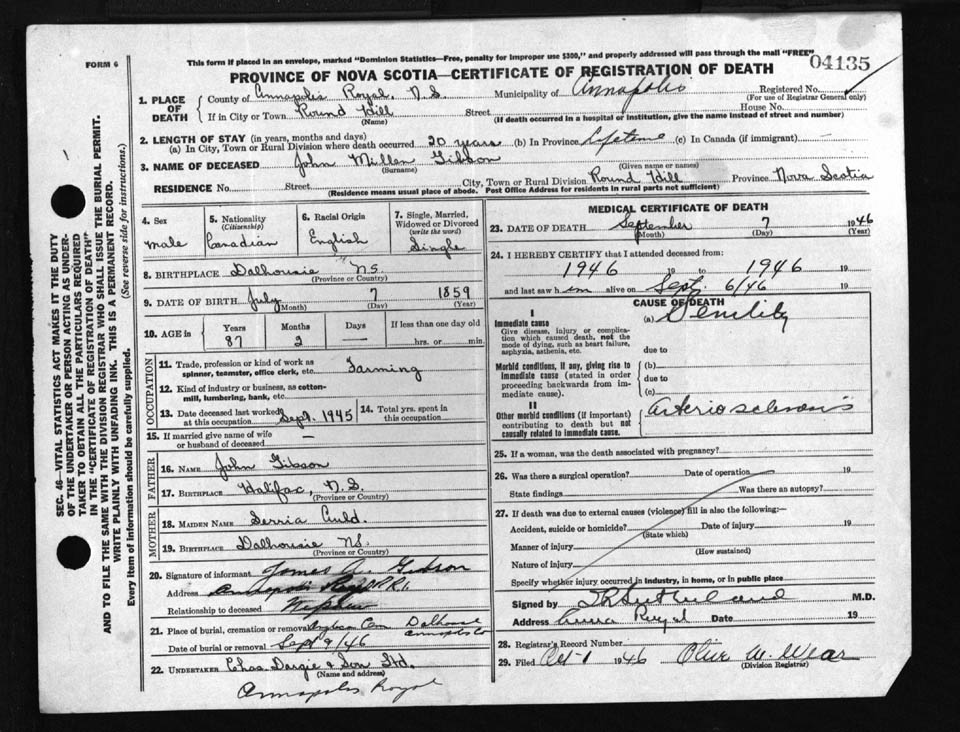 This form if placed in an envelope, marked "Dominion Statistics—Free, penalty for improper use $300," and properly addressed will pass through the mail "FREE"
FORM 6
PROVINCE OF NOVA SCOTIA—CERTIFICATE OF REGISTRATION OF DEATH
04135
1. PLACE OF DEATH
County of Annapolis Royal, N.S. Municipality of Annapolis Registered No.
(For use of Registrar General only)
If in City or Town Round Hill Street House No.
(Name) (If death occurred in a hospital or institution, give the name instead of street and number)
2. LENGTH OF STAY (in years, months and days)
(a) In City, Town or Rural Division where death occurred 20 years (b) In Province Lifetime (c) In Canada (if immigrant)
3. NAME OF DECEASED John Millen Gibson
(Surname) (Given name or names)
RESIDENCE No. Street City, Town or Rural Division Round Hill Province Nova Scotia
(Residence means usual place of abode. Post Office Address for residents in rural parts not sufficient)
4. Sex
male
5. Nationality
(Citizenship)
Canadian
6. Racial Origin
English
7. Single, Married, Widowed or Divorced
(write the word)
Single
8. BIRTHPLACE Dalhousie N.S.
(Province or Country)
9. DATE OF BIRTH July 7 1859
(Month) (Day) (Year)
10. AGE in
Years Months Days If less than one day old
87 2 — hrs. or min.
OCCUPATION
11. Trade, profession or kind of work as spinner, teamster, office clerk, etc. Farming
12. Kind of industry or business, as cotton-mill, lumbering, bank, etc.
13. Date deceased last worked at this occupation Sept. 1945
14. Total yrs. spent in this occupation
15. If married give name of wife or husband of deceased —
FATHER
16. NAME John Gibson
17. BIRTHPLACE Halifax, N.S.
(Province or Country)
MOTHER
18. MAIDEN NAME Auld.
19. BIRTHPLACE Dalhousie N.S.
(Province or Country)
20. Signature of informant Gibson
Address Annapolis Royal R.R.1.
Relationship to deceased Nephew
21. Place of burial, cremation or removal Anglican Cem Dalhousie Annapolis Co
Date of burial or removal Sept 9/46
22. UNDERTAKER Chas. Dargie & Son Ltd.
(Name and address)
Annapolis Royal
MEDICAL CERTIFICATE OF DEATH
23. DATE OF DEATH September 7 1946
(Month) (Day) (Year)
24. I HEREBY CERTIFY that I attended deceased from:
1946 19 to 1946 19
and last saw h im alive on Sept. 6/46 19
CAUSE OF DEATH
I
Immediate cause
Give disease, injury or complication which caused death, not the mode of dying, such as heart failure, asphyxia, asthenia, etc.
(a) Senility
due to
Morbid conditions, if any, giving rise to immediate cause (stated in order proceeding backwards from immediate cause).
(b)
due to
(c)
II
Other morbid conditions (if important) contributing to death but not causally related to immediate cause.
arteriosclerosis
25. If a woman, was the death associated with pregnancy?
26. Was there a surgical operation? Date of operation 19
State findings Was there an autopsy?
27. If death was due to external causes (violence) fill in also the following:—
Accident, suicide or homicide? Date of injury 19
(State which)
Manner of injury
(How sustained)
Nature of injury
Specify whether injury occurred in industry, in home, or in public place
Signed by Sutherland M.D.
Address Anna Royal Date 19
28. Registrar's Record Number
29. Filed Oct 1 1946
(Division Registrar)
SEC. 46—VITAL STATISTICS ACT MAKES IT THE DUTY
OF THE UNDERTAKER OR PERSON ACTING AS UNDER-
TAKER TO OBTAIN ALL THE PARTICULARS REQUIRED
IN THE "CERTIFICATE OF REGISTRATION OF DEATH"
AND TO FILE THE SAME WITH THE DIVISION REGISTRAR WHO SHALL ISSUE THE BURIAL PERMIT.
WRITE PLAINLY WITH UNFADING INK. THIS IS A PERMANENT RECORD.
Every item of information should be carefully supplied. (See reverse side for instructions.)